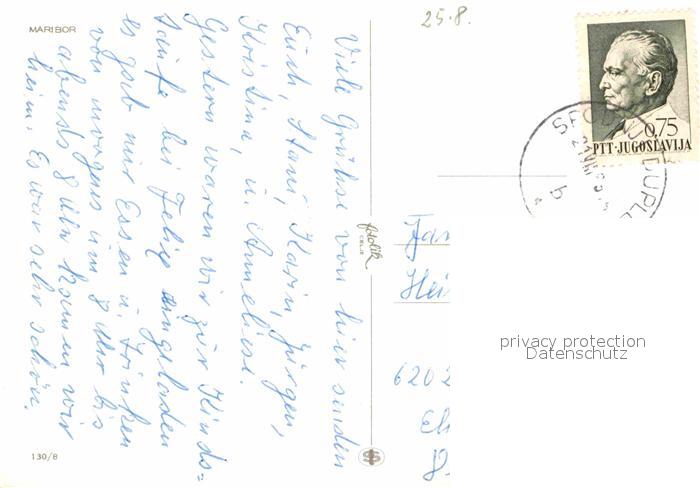 MARIBOR
25.8.
Viele Grüße von hier senden
Euch, Stani, Karin, Jürgen,
Kristina, u. Anneliese.
Gestern waren wir zur Kinds=
taufe bei Felix eingeladen
es gab nur Essen u. Trinken
von morgens um 9 Uhr bis
abends 8 Uhr kamen wir
heim. Es war sehr schön.
130/8
fotolik
CELJE
0,75
PTT·JUGOSLAVIJA
Hei
6202
privacy protection
Datenschutz